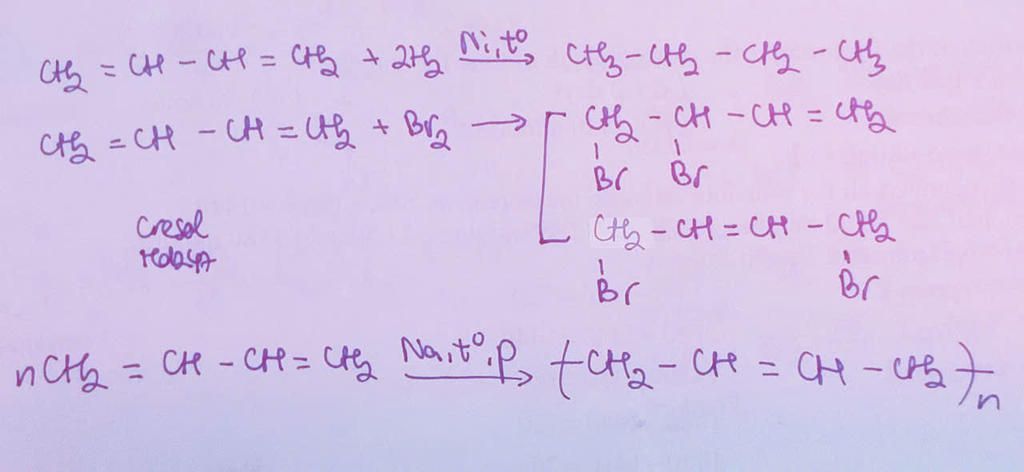 CH₂ = CH – CH = CH₂ + 2H₂ —Ni, t°→ CH₃ – CH₂ – CH₂ – CH₃
CH₂ = CH – CH = CH₂ + Br₂ → [ CH₂ – CH – CH = CH₂
Br Br
CH₂ – CH = CH – CH₂
Br Br
Cresol
nCH₂ = CH – CH = CH₂ —Na, t°, p→ (CH₂ – CH = CH – CH₂)n